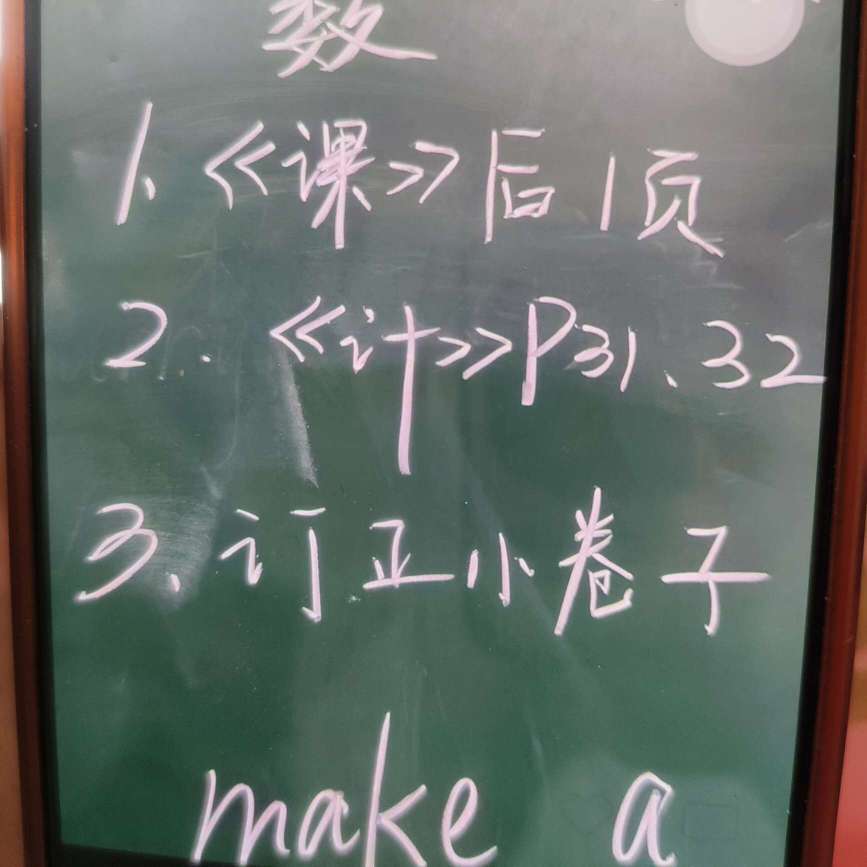 数
1、《课》后1页
2.《计》P31、32
3、订正小卷子
make a